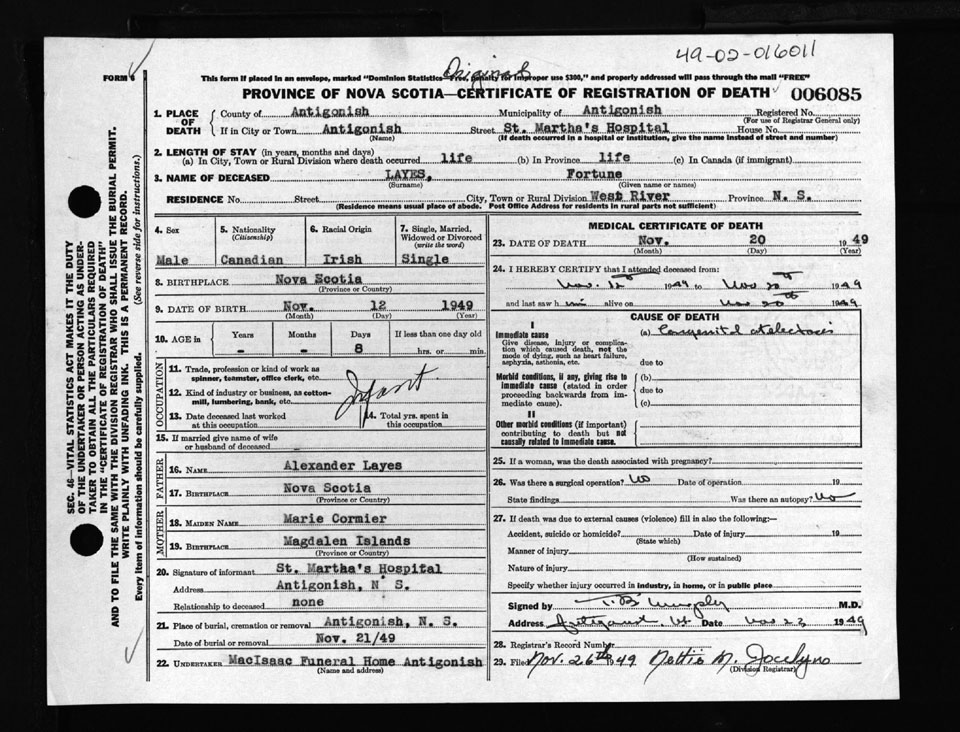 49-02-016011
Original
FORM 6
This form if placed in an envelope, marked "Dominion Statistics—Free, penalty for improper use $300," and properly addressed will pass through the mail "FREE"
PROVINCE OF NOVA SCOTIA—CERTIFICATE OF REGISTRATION OF DEATH 006085
1. PLACE OF DEATH { County of Antigonish Municipality of Antigonish Registered No.
(For use of Registrar General only)
If in City or Town Antigonish Street St. Martha's Hospital House No.
(Name) (If death occurred in a hospital or institution, give the name instead of street and number)
2. LENGTH OF STAY (in years, months and days)
(a) In City, Town or Rural Division where death occurred life (b) In Province life (c) In Canada (if immigrant)
3. NAME OF DECEASED LAYES, Fortune
(Surname) (Given name or names)
RESIDENCE No. Street City, Town or Rural Division West River Province N. S.
(Residence means usual place of abode. Post Office Address for residents in rural parts not sufficient)
4. Sex 5. Nationality (Citizenship) 6. Racial Origin 7. Single, Married, Widowed or Divorced (write the word)
Male Canadian Irish Single
8. BIRTHPLACE Nova Scotia
(Province or Country)
9. DATE OF BIRTH Nov. 12 1949
(Month) (Day) (Year)
10. AGE in Years Months Days If less than one day old
- - 8 hrs. or min.
OCCUPATION
11. Trade, profession or kind of work as
spinner, teamster, office clerk, etc.
12. Kind of industry or business, as cotton-
mill, lumbering, bank, etc.
Infant
13. Date deceased last worked at this occupation 14. Total yrs. spent in this occupation
15. If married give name of wife
or husband of deceased
FATHER
16. NAME Alexander Layes
17. BIRTHPLACE Nova Scotia
(Province or Country)
MOTHER
18. MAIDEN NAME Marie Cormier
19. BIRTHPLACE Magdalen Islands
(Province or Country)
20. Signature of informant St. Martha's Hospital
Address Antigonish, N. S.
Relationship to deceased none
21. Place of burial, cremation or removal Antigonish, N. S.
Date of burial or removal Nov. 21/49
22. UNDERTAKER MacIsaac Funeral Home Antigonish
(Name and address)
MEDICAL CERTIFICATE OF DEATH
23. DATE OF DEATH Nov. 20 1949
(Month) (Day) (Year)
24. I HEREBY CERTIFY that I attended deceased from:
Nov. 12th 1949 to Nov 20th 1949
and last saw h im alive on Nov 20th 1949
CAUSE OF DEATH
I
Immediate cause (a) Congenital atelectasis
Give disease, injury or complica-
tion which caused death, not the
mode of dying, such as heart failure,
asphyxia, asthenia, etc. due to
Morbid conditions, if any, giving rise to (b)
immediate cause (stated in order due to
proceeding backwards from im-
mediate cause). (c)
II
Other morbid conditions (if important)
contributing to death but not
causally related to immediate cause.
25. If a woman, was the death associated with pregnancy?
26. Was there a surgical operation? No Date of operation 19
State findings Was there an autopsy? No
27. If death was due to external causes (violence) fill in also the following:—
Accident, suicide or homicide? Date of injury 19
(State which)
Manner of injury
(How sustained)
Nature of injury
Specify whether injury occurred in industry, in home, or in public place
Signed by T. B Murphy M.D.
Address Antigonish, NS Date Nov 23 1949
28. Registrar's Record Number
29. Filed Nov. 26th 1949 Nettie M. Jocelyn
(Division Registrar)
SEC. 46—VITAL STATISTICS ACT MAKES IT THE DUTY
OF THE UNDERTAKER OR PERSON ACTING AS UNDER-
TAKER TO OBTAIN ALL THE PARTICULARS REQUIRED
IN THE "CERTIFICATE OF REGISTRATION OF DEATH"
AND TO FILE THE SAME WITH THE DIVISION REGISTRAR WHO SHALL ISSUE THE BURIAL PERMIT.
WRITE PLAINLY WITH UNFADING INK. THIS IS A PERMANENT RECORD.
Every item of information should be carefully supplied. (See reverse side for instructions.)